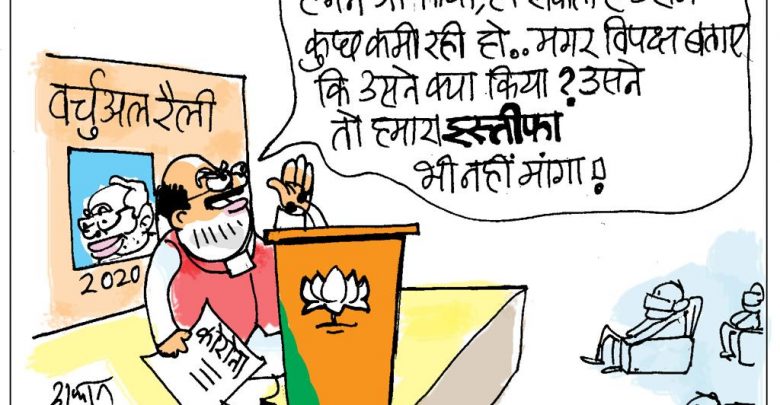 कुछ कमी रही हो.. मगर विपक्ष बताए
कि उसने क्या किया? उसने
तो हमारा इस्तीफा
भी नहीं मांगा!
वर्चुअल रैली
2020
कोरोना